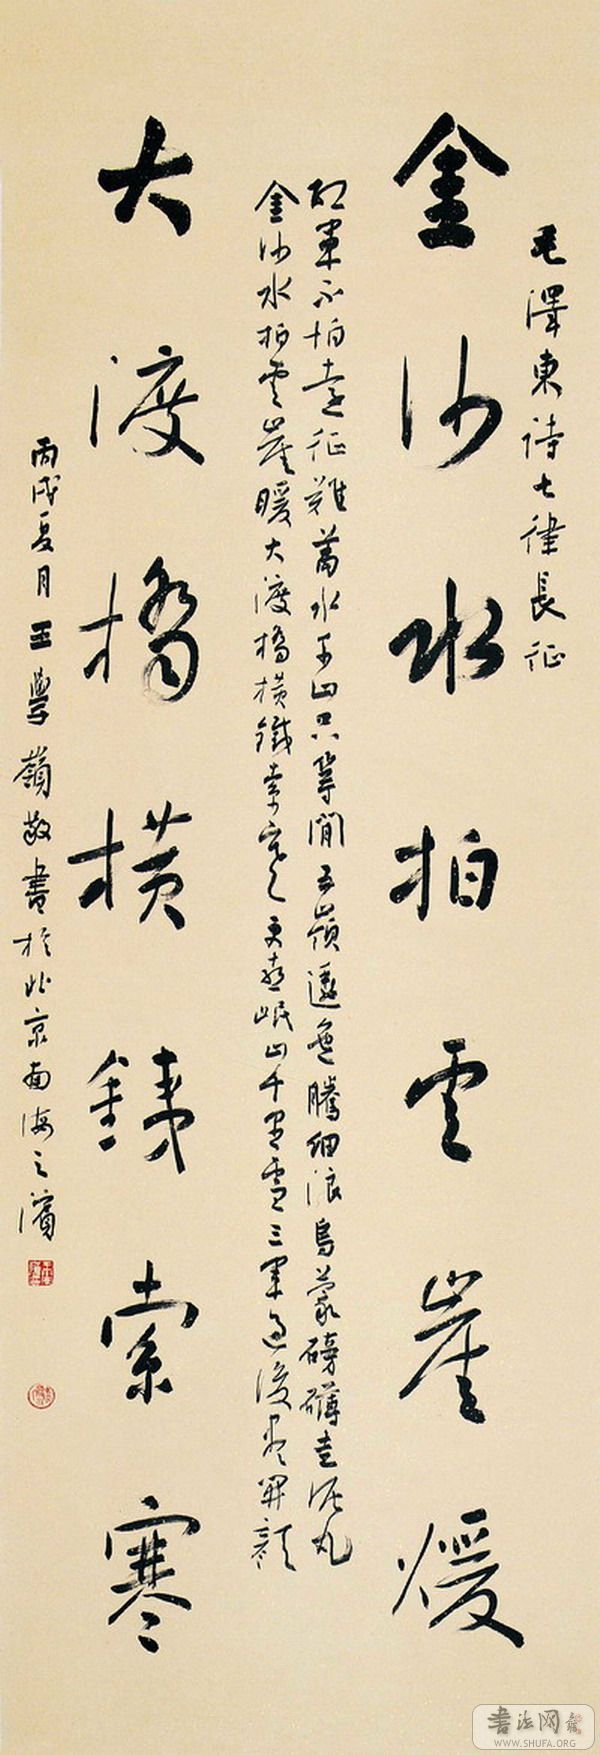 毛澤東詩七律長征
金沙水拍雲崖煖
紅軍不怕遠征難萬水千山只等閒五嶺逶迤騰細浪烏蒙磅礴走泥丸
金沙水拍雲崖暖大渡橋橫鐵索寒更喜岷山千里雪三軍過後盡開顏
大渡橋橫銕索寒
丙戌夏月王學嶺敬書於北京南海之濱
書法网
WWW.SHUFA.ORG